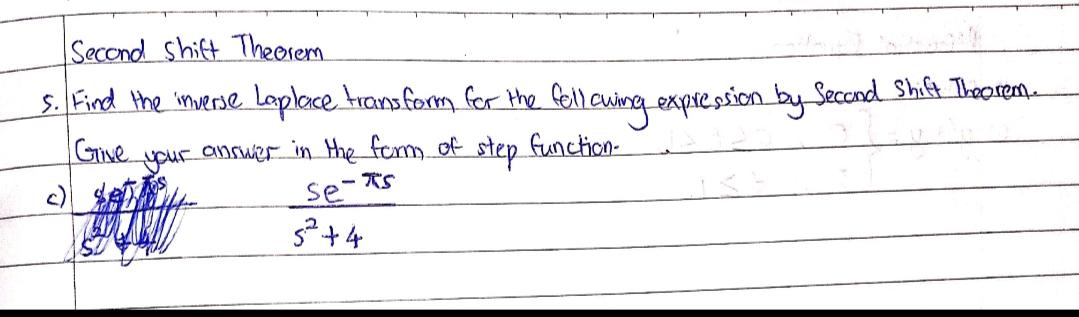 Second Shift Theorem
5. Find the inverse Laplace transform for the following expression by Second Shift Theorem.
Give your answer in the form of step function.
c) se^-πs
s²+4